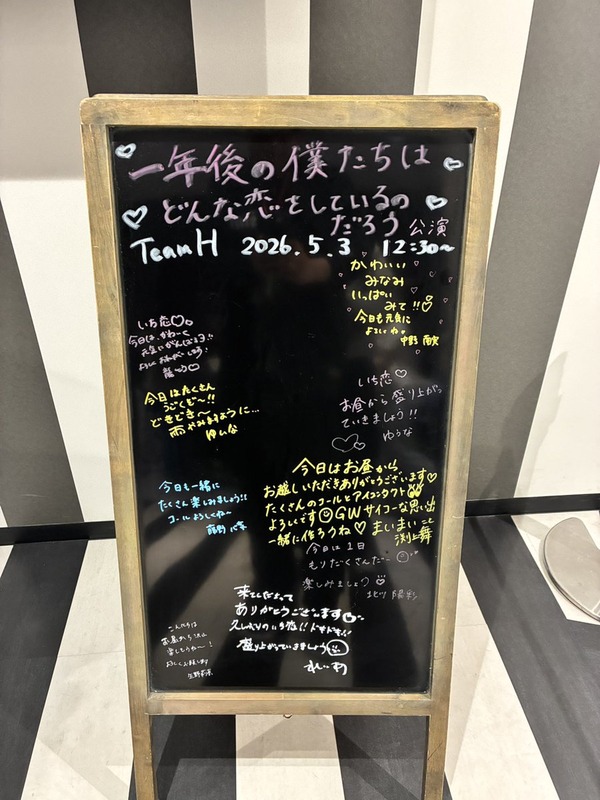 一年後の僕たちは
どんな恋をしているの
だろう 公演
Team H 2026.5.3 12:30~
かわいい
みなみ
いっぱい
みて!!
今日も元気に
よろしくね。
いち恋♡
今日は、かわいく
元気にがんばるヨ!!
今日はたくさん
うごくぞ~!!
どきどき~
雨やみますように…
ゆいな
いち恋♡
お昼から盛り上がっ
ていきましょう!!
ゆうな
今日はお昼から、
お越しいただきありがとうございます♡
たくさんのコールとアイコンタクト
よろしくです GWサイコーな思い出
一緒に作ろうね♡ まいまいこと
渕上舞
今日も一緒に
たくさん楽しみましょう!!
コールよろしくね~
今日は1日
もりだくさんだー
楽しみましょう
北川 陽彩
来てくださって
ありがとうございます
久しぶりのいち恋!! ドキドキ!!
盛り上がっていきましょう
こんにちは
お昼から沢山
楽しもうね~!
よろしくお願いします
生野莉奈